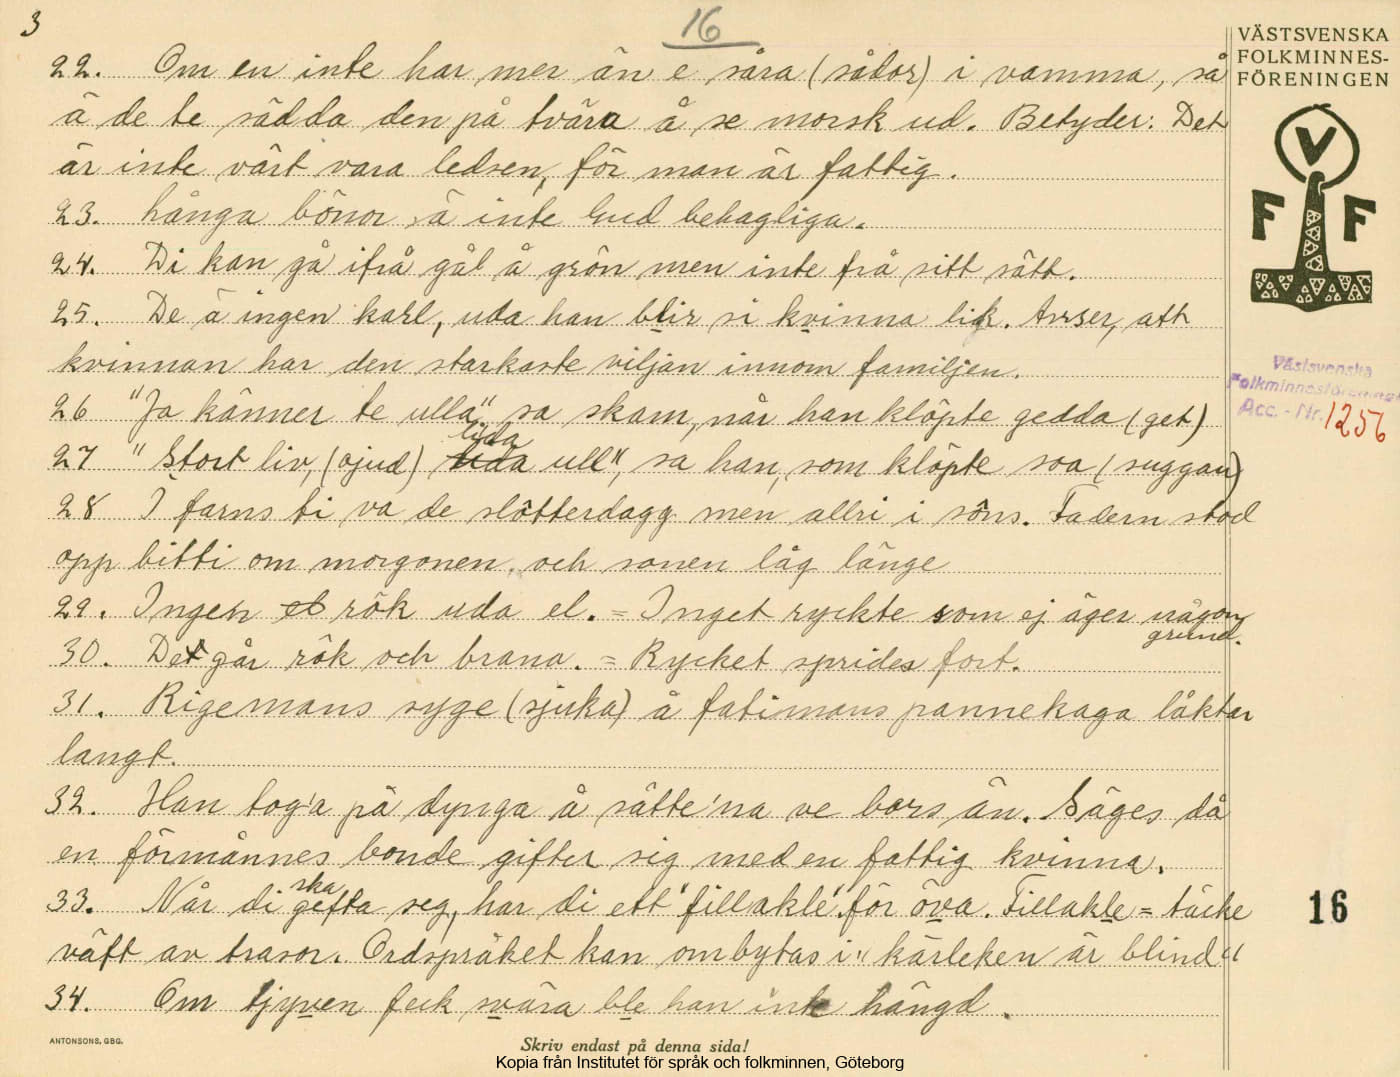 3
16
VÄSTSVENSKA
FOLKMINNES-
FÖRENINGEN
V
F F
22. Om en inte har mer än e såra (sådor) i vamma, så
ä de te sädda den på tvära å se morsk ud. Betyder: Det
är inte värt vara ledsen, för man är fattig.
23. Långa bönor ä inte Gud behagliga.
24. Di kan gå ifrå gål å grön men inte frå sitt sätt.
25. De ä ingen karl, uda han blir si kvinna lik. Avser, att
kvinnan har den starkaste viljan innom familjen.
Västsvenska
Folkminnesföreningen
Acc. - Nr. 1256
26 "Ja känner te ulla", sa skam, når han klöpte gedda (get)
27 "Stort liv, (ljud) lida ull", sa han, som klöpte soa (suggan)
28 I farns ti va de slötterdagg men allri i söns. Fadern stod
opp bitti om morgonen och sonen låg länge
29. Ingen rök uda el. = Inget ryckte som ej äger någon
grund.
30. Det går rök och brana. = Rycket sprides fort.
31. Rigemans syge (sjuka) å fatimans pannekaga låktar
langt.
32. Han tog'a på dynga å sätte'na ve bors än. Säges då
en förmånnes bonde gifter sig med en fattig kvinna.
33. Når di ska gefta seg, har di ett "fillakle" för öva. Fillakle = täcke
väft av trasor. Ordspråket kan ombytas i "kärleken är blind"
34. Om tjyven feck svära ble han inte hängd.
16
ANTONSONS, GBG.
Skriv endast på denna sida!
Kopia från Institutet för språk och folkminnen, Göteborg